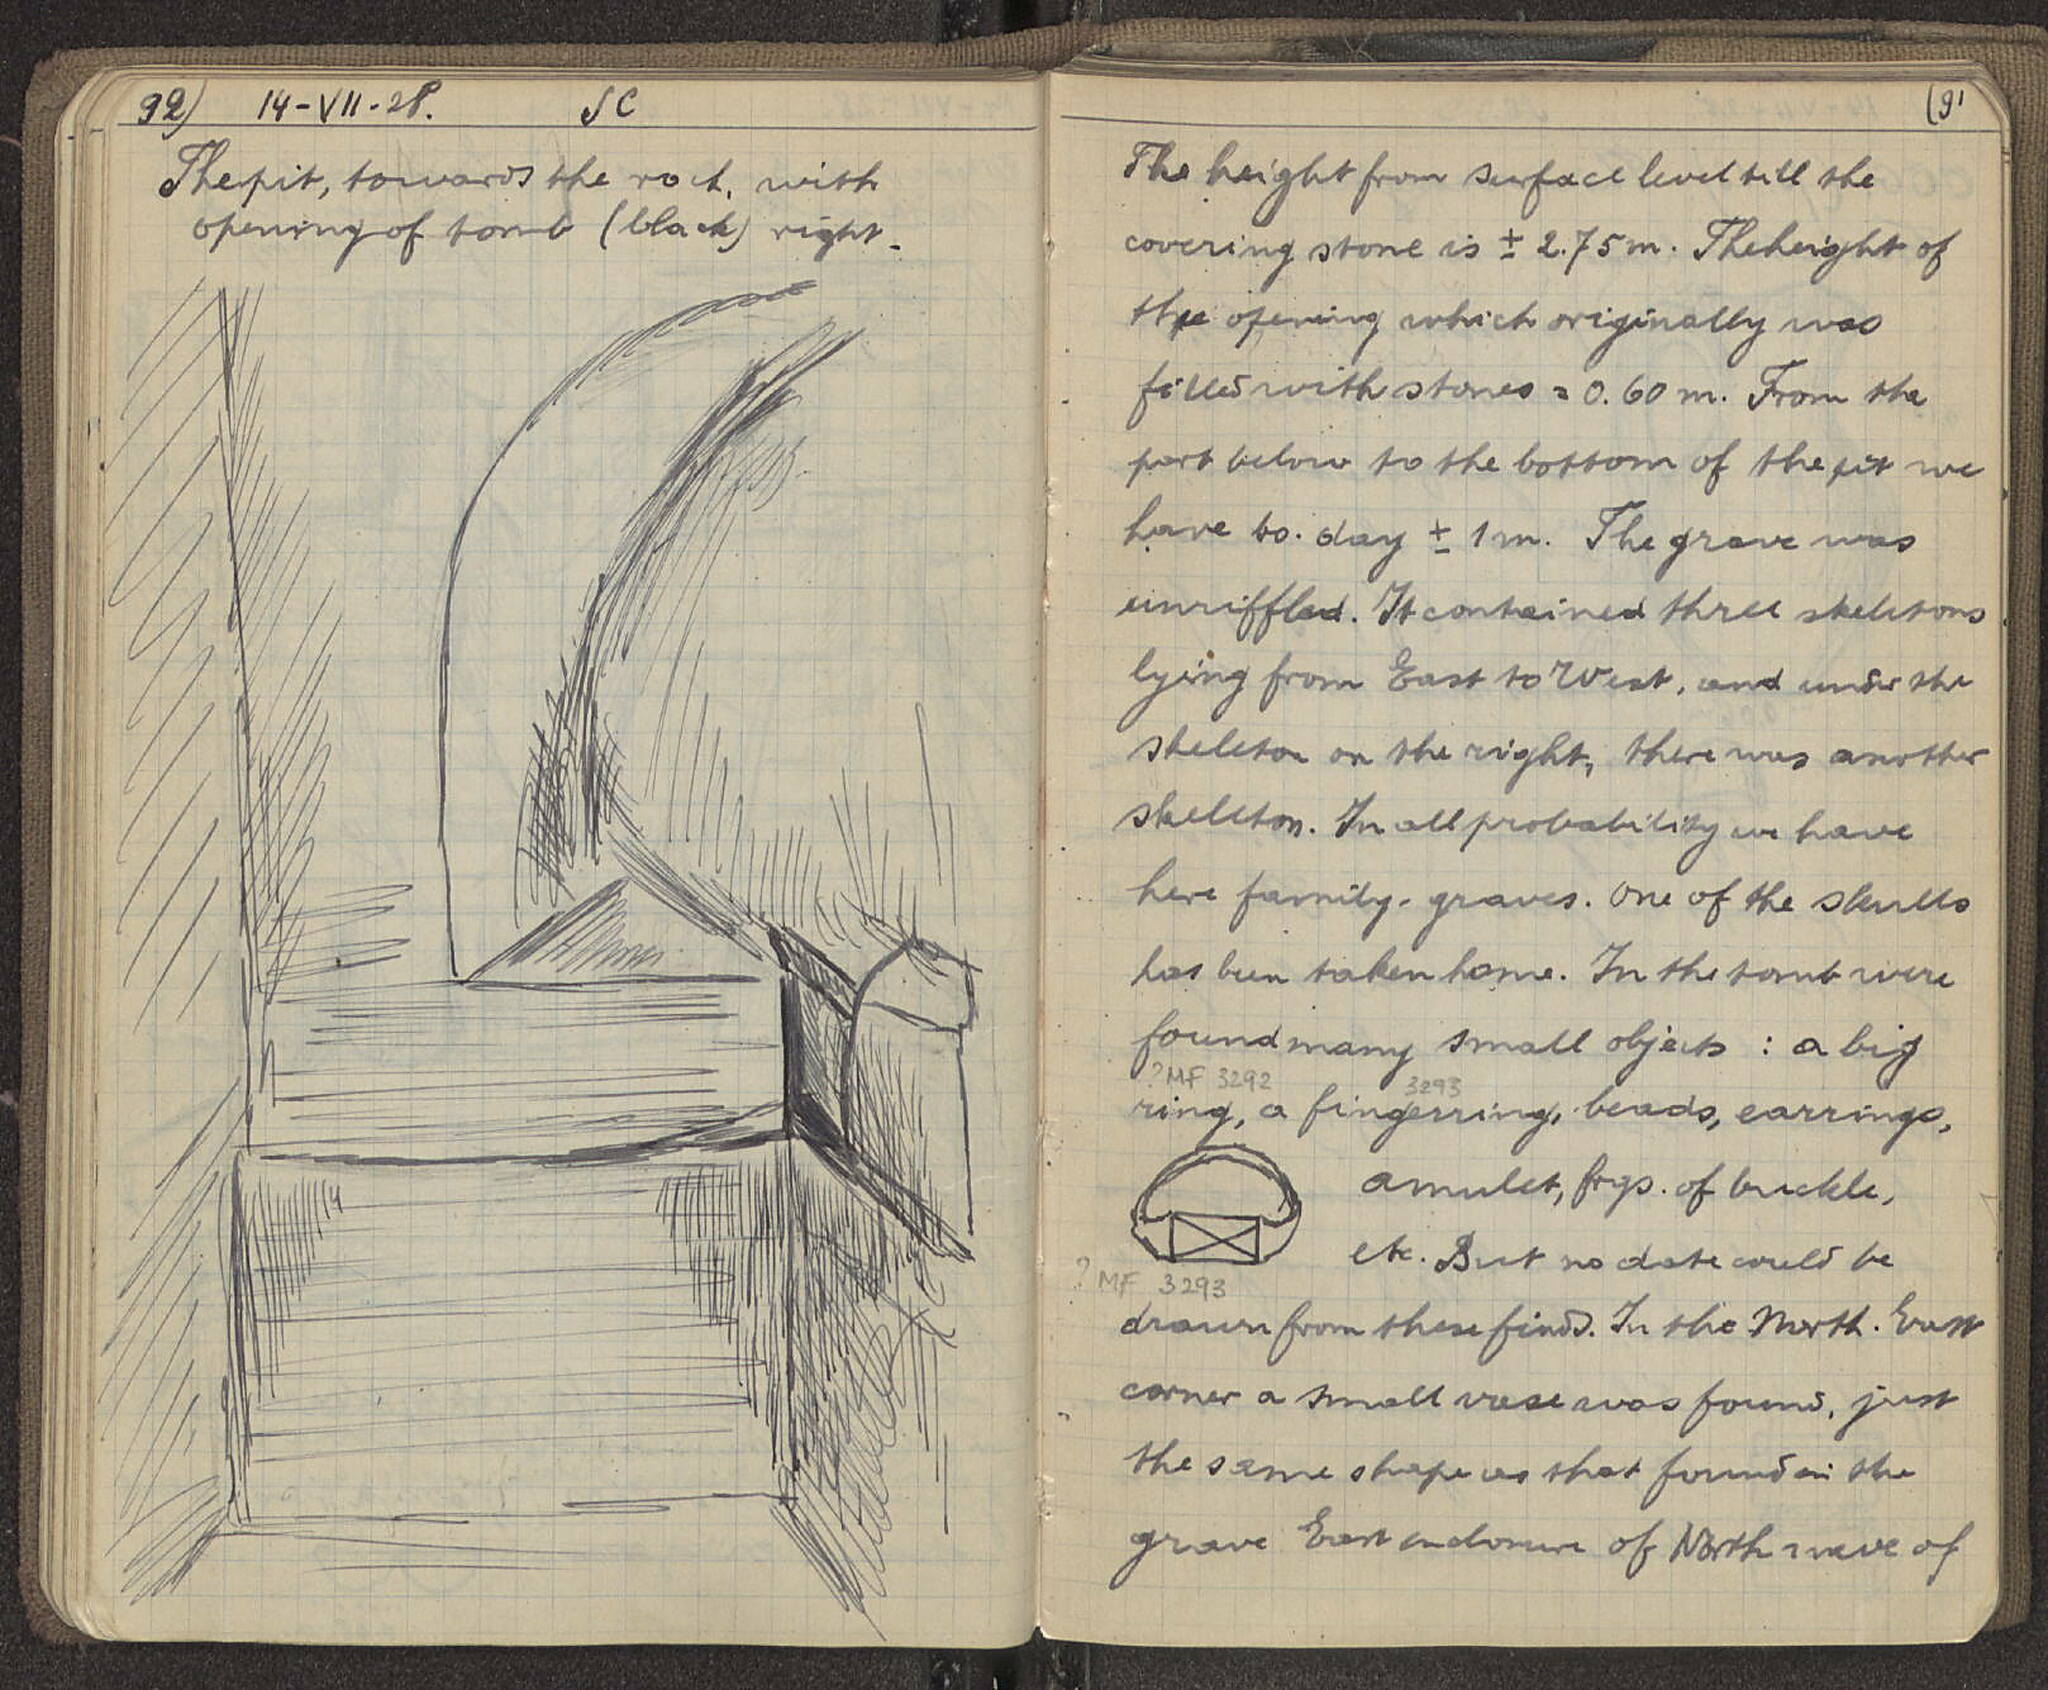 92) 14-VII-28. SC
The pit, towards the rock, with
opening of tomb (black) right.
(91
The height from surface level till the
covering stone is ± 2.75 m. The height of
the opening which originally was
filled with stones = 0.60 m. From the
part below to the bottom of the pit we
have to-day ± 1 m. The grave was
unriffled. It contained three skeletons
lying from East to West, and under the
skeleton on the right, there was another
skeleton. In all probability we have
here family-graves. One of the skulls
has been taken home. In the tomb were
found many small objects : a big
?MF 3292 3293
ring, a fingerring, beads, earrings,
amulet, frgs. of buckle,
etc. But no date could be
? MF 3293
drawn from these finds. In the North-East
corner a small vase was found, just
the same shape as that found in the
grave East enclosure of North nave of